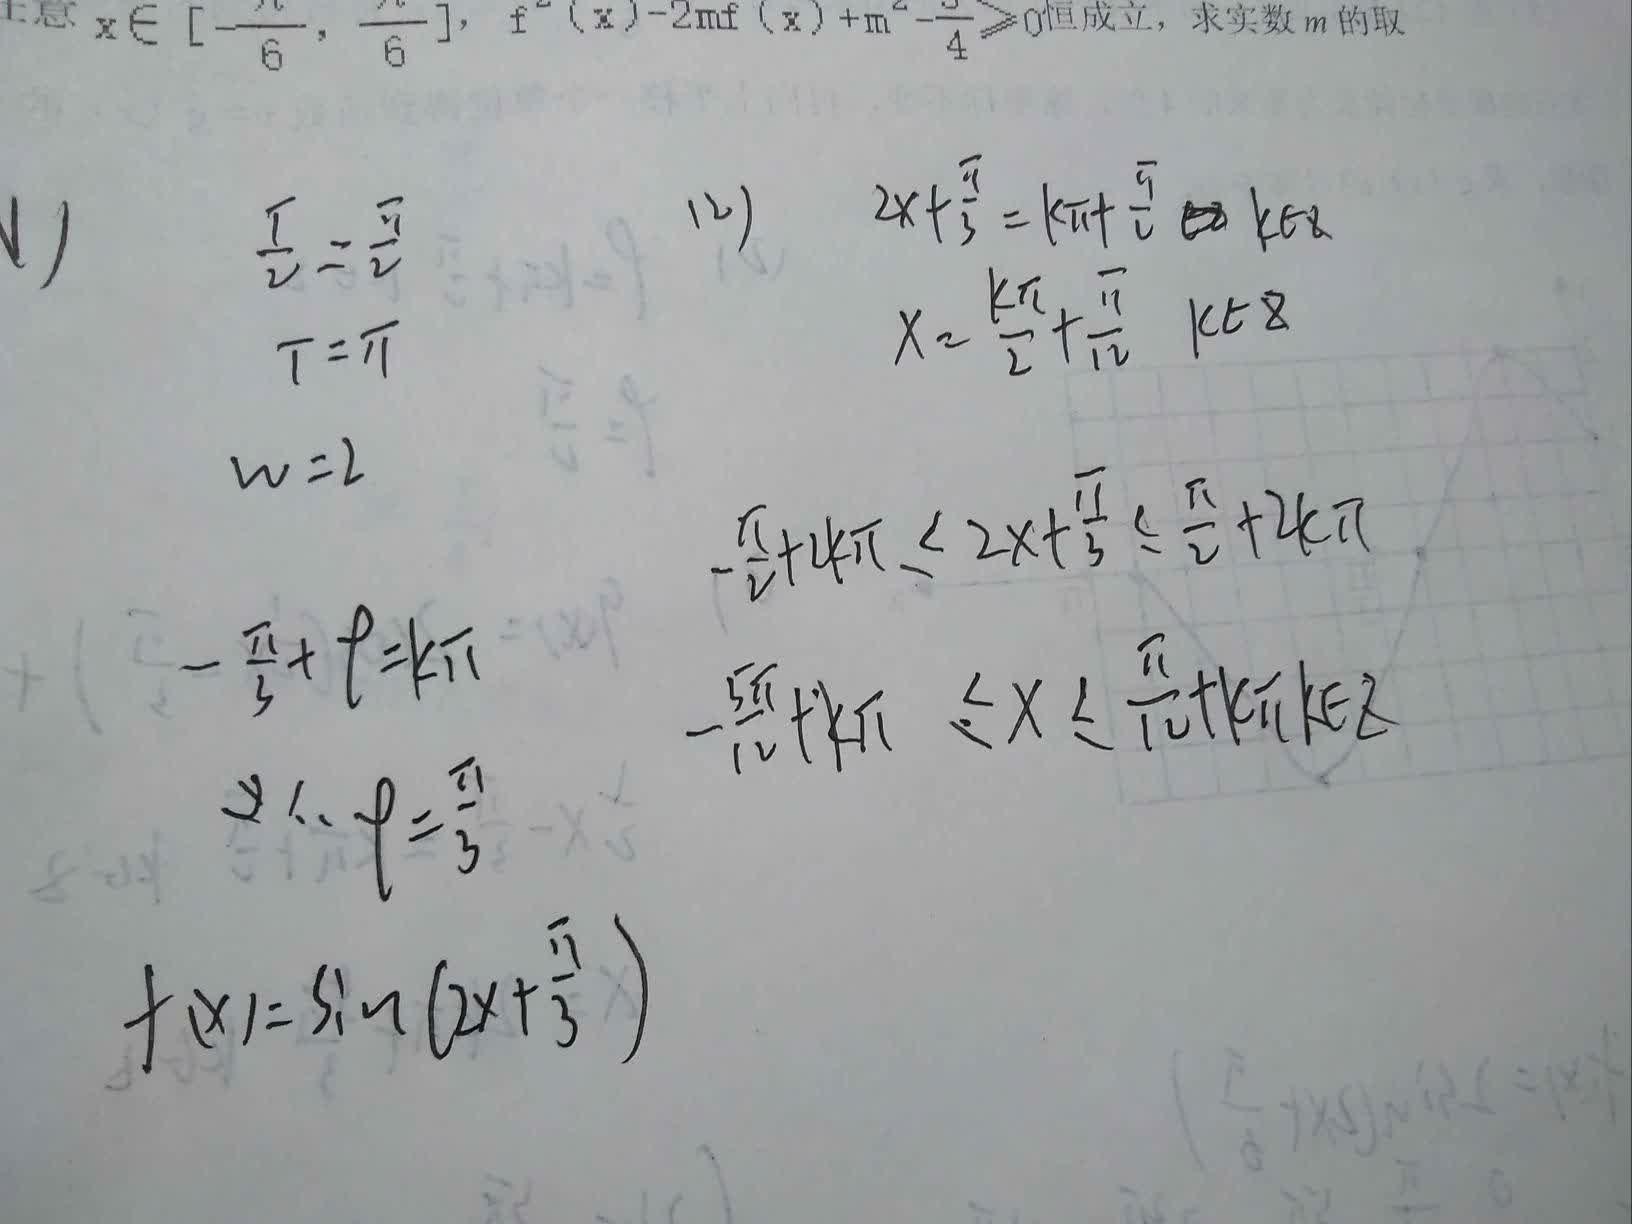 x∈[-π/6, π/6], f²(x)-2mf(x)+m²-3/4≥0恒成立, 求实数m的取
1)
T/2=π/2
T=π
w=2
-π/3+φ=kπ
φ=π/3
f(x)=sin(2x+π/3)
(2) 2x+π/3=kπ+π/2 k∈Z
x=kπ/2+π/12 k∈Z
-π/2+2kπ≤2x+π/3≤π/2+2kπ
-5π/12+kπ≤x≤π/12+kπ k∈Z